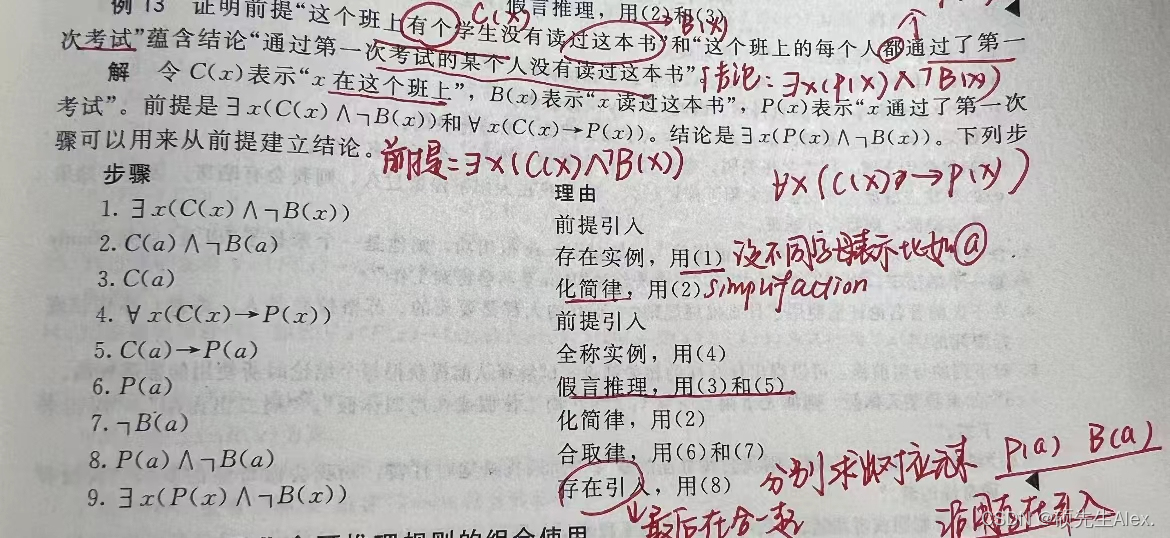 例 13 证明前提“这个班上有个学生没有读过这本书”和“这个班上的每个人都通过了第一
假言推理，用(2)和(3)
C(x)
B(x)
次考试”蕴含结论“通过第一次考试的某个人没有读过这本书”。
结论：∃x(P(x)∧¬B(x))
解 令C(x)表示“x在这个班上”，B(x)表示“x读过这本书”，P(x)表示“x通过了第一次
考试”。前提是∃x(C(x)∧¬B(x))和∀x(C(x)→P(x))。结论是∃x(P(x)∧¬B(x))。下列步
骤可以用来从前提建立结论。
前提=∃x(C(x)∧¬B(x))
∀x(C(x)→P(x))
步骤 理由
1. ∃x(C(x)∧¬B(x)) 前提引入
2. C(a)∧¬B(a) 存在实例，用(1)
没不同字母表示比如ⓐ
3. C(a) 化简律，用(2)
simplifaction
4. ∀x(C(x)→P(x)) 前提引入
5. C(a)→P(a) 全称实例，用(4)
6. P(a) 假言推理，用(3)和(5)
7. ¬B(a) 化简律，用(2)
8. P(a)∧¬B(a) 合取律，用(6)和(7)
分别求出对应元素 P(a) B(a)
9. ∃x(P(x)∧¬B(x)) 存在引入，用(8)
最后在合一起
CSDN @硕先生Alex.